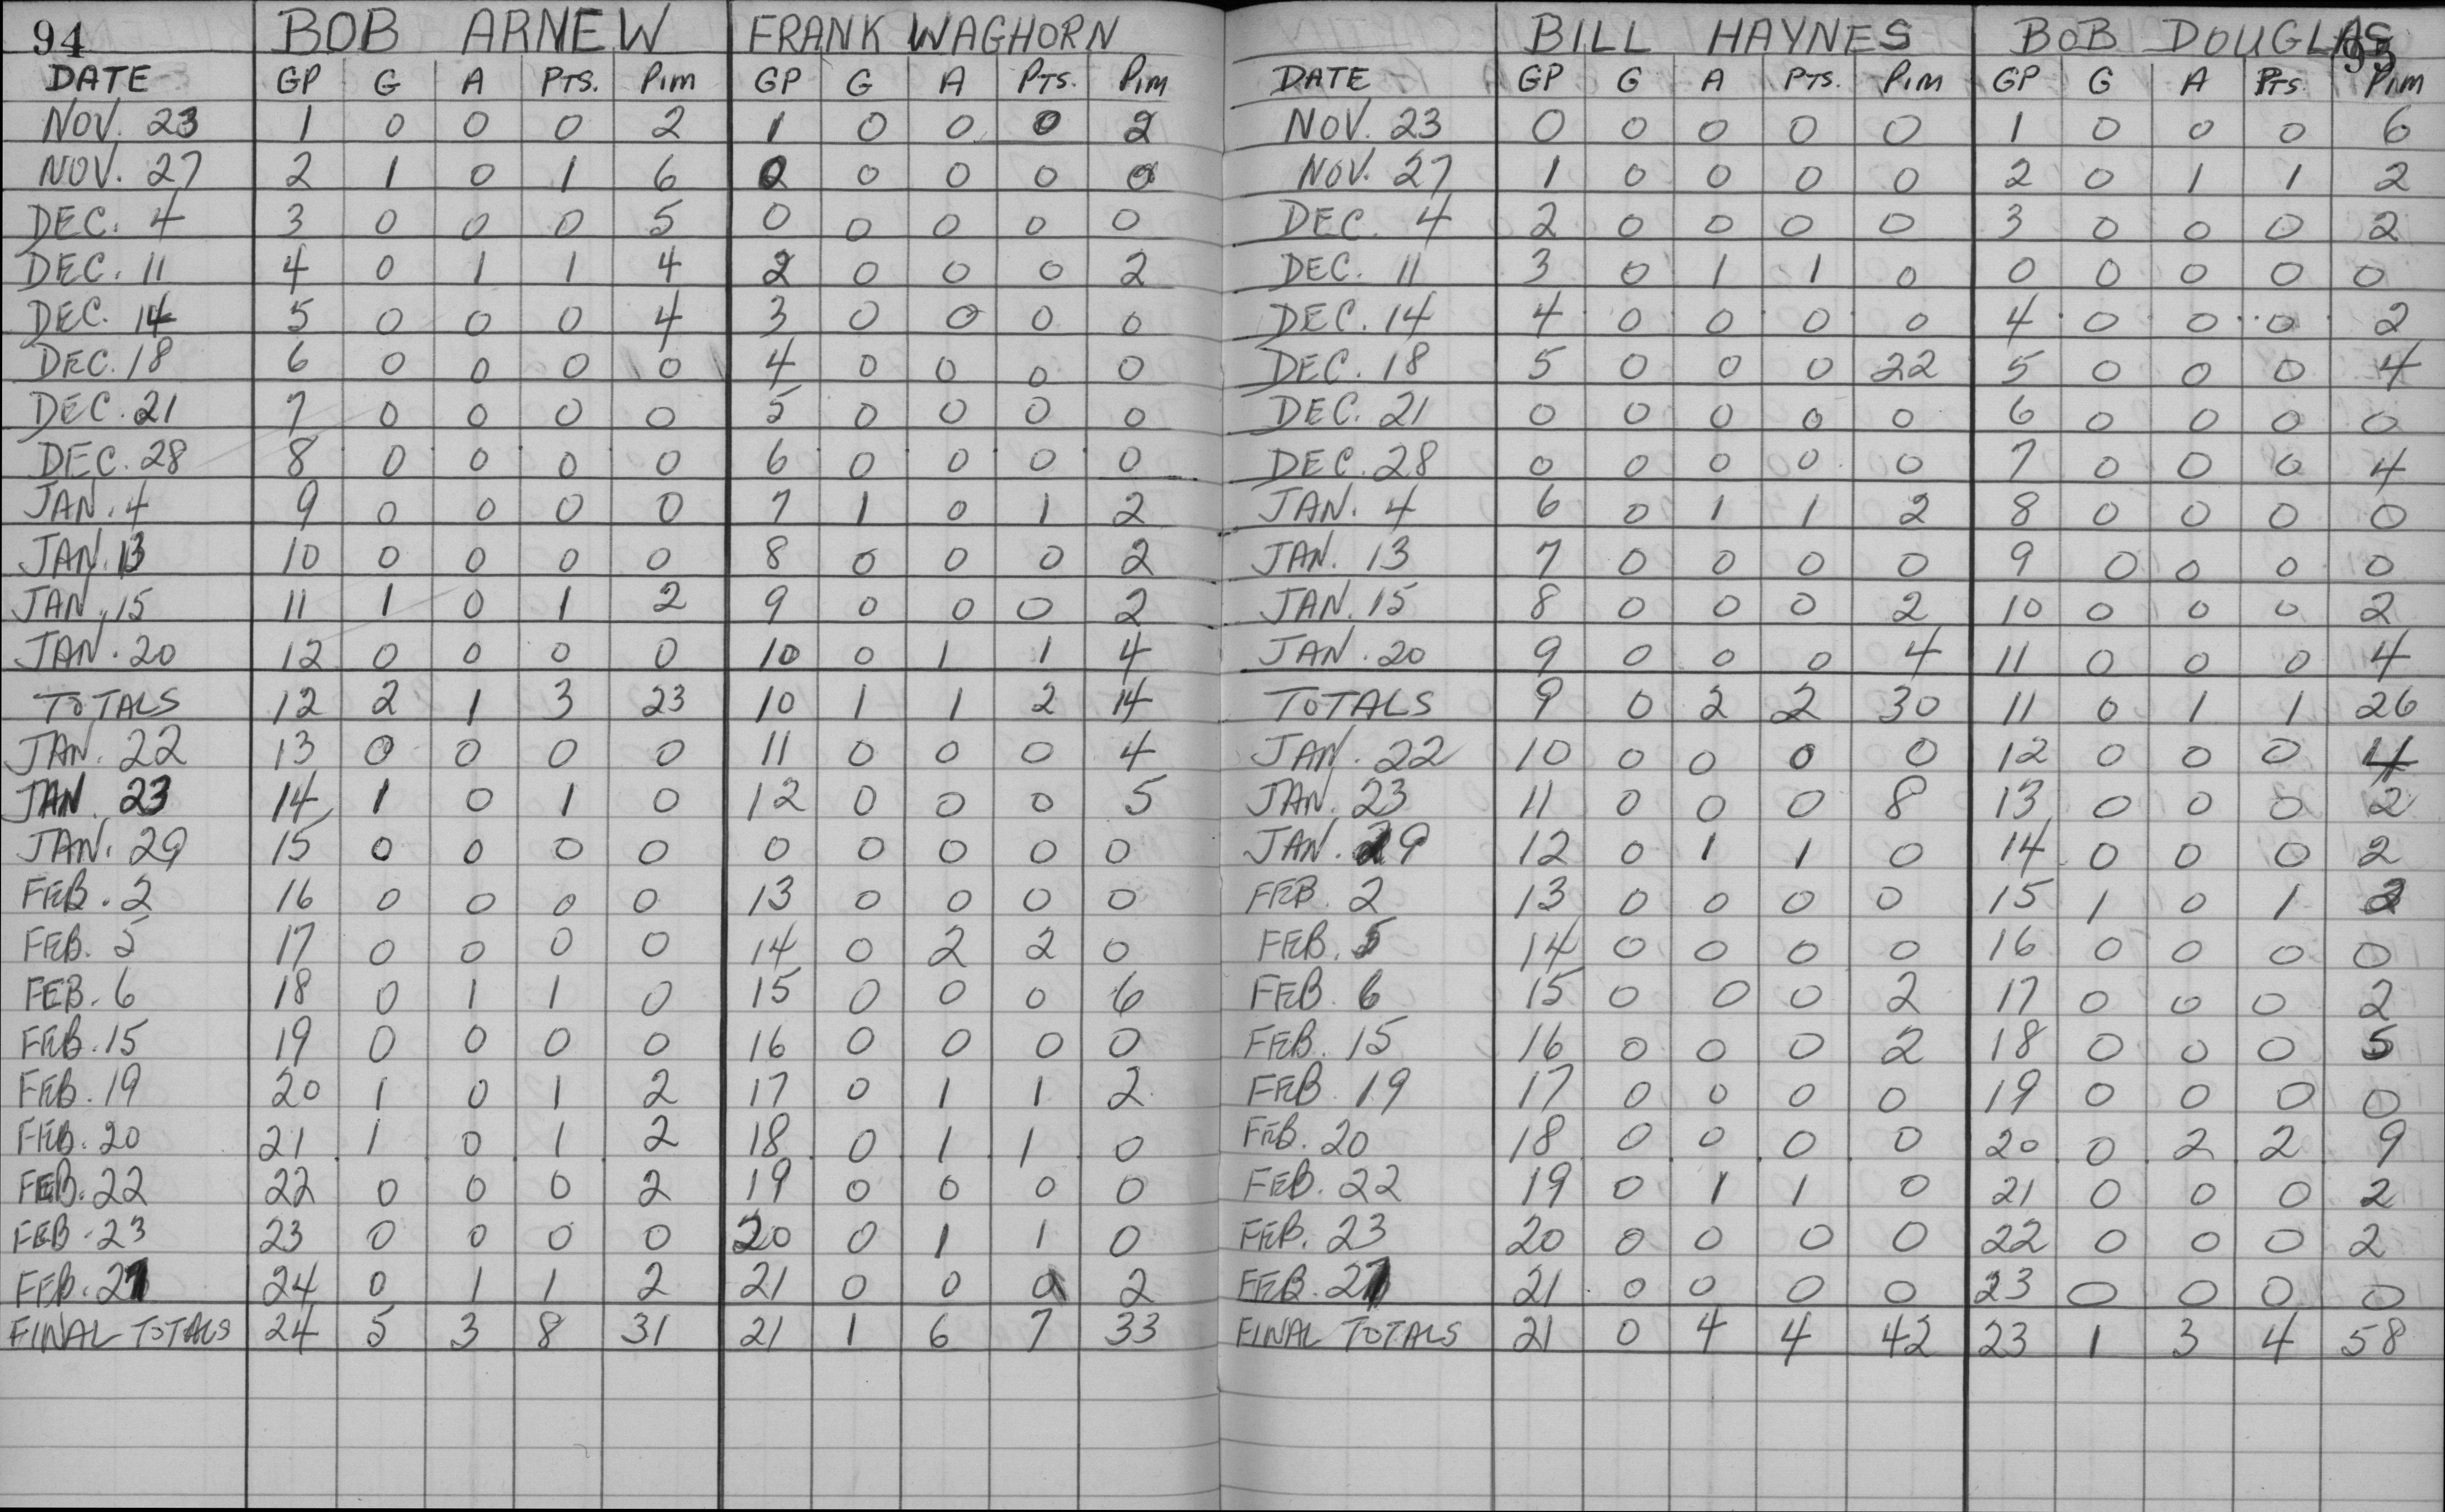 94 BOB ARNEW FRANK WAGHORN
DATE GP G A PTS. PIM GP G A PTS. PIM
NOV. 23 1 0 0 0 2 1 0 0 0 2
NOV. 27 2 1 0 1 6 0 0 0 0 0
DEC. 4 3 0 0 0 5 0 0 0 0 0
DEC. 11 4 0 1 1 4 2 0 0 0 2
DEC. 14 5 0 0 0 4 3 0 0 0 0
DEC. 18 6 0 0 0 0 4 0 0 0 0
DEC. 21 7 0 0 0 0 5 0 0 0 0
DEC. 28 8 0 0 0 0 6 0 0 0 0
JAN. 4 9 0 0 0 0 7 1 0 1 2
JAN. 13 10 0 0 0 0 8 0 0 0 2
JAN. 15 11 1 0 1 2 9 0 0 0 2
JAN. 20 12 0 0 0 0 10 0 1 1 4
TOTALS 12 2 1 3 23 10 1 1 2 14
JAN. 22 13 0 0 0 0 11 0 0 0 4
JAN. 23 14 1 0 1 0 12 0 0 0 5
JAN. 29 15 0 0 0 0 0 0 0 0 0
FEB. 2 16 0 0 0 0 13 0 0 0 0
FEB. 5 17 0 0 0 0 14 0 2 2 0
FEB. 6 18 0 1 1 0 15 0 0 0 6
FEB. 15 19 0 0 0 0 16 0 0 0 0
FEB. 19 20 1 0 1 2 17 0 1 1 2
FEB. 20 21 1 0 1 2 18 0 1 1 0
FEB. 22 22 0 0 0 2 19 0 0 0 0
FEB. 23 23 0 0 0 0 20 0 1 1 0
FEB. 27 24 0 1 1 2 21 0 0 0 2
FINAL TOTALS 24 5 3 8 31 21 1 6 7 33
BILL HAYNES BOB DOUGLAS 95
DATE GP G A PTS. PIM GP G A PTS. PIM
NOV. 23 0 0 0 0 0 1 0 0 0 6
NOV. 27 1 0 0 0 0 2 0 1 1 2
DEC. 4 2 0 0 0 0 3 0 0 0 2
DEC. 11 3 0 1 1 0 0 0 0 0 0
DEC. 14 4 0 0 0 0 4 0 0 0 2
DEC. 18 5 0 0 0 22 5 0 0 0 4
DEC. 21 0 0 0 0 0 6 0 0 0 0
DEC. 28 0 0 0 0 0 7 0 0 0 4
JAN. 4 6 0 1 1 2 8 0 0 0 0
JAN. 13 7 0 0 0 0 9 0 0 0 0
JAN. 15 8 0 0 0 2 10 0 0 0 2
JAN. 20 9 0 0 0 4 11 0 0 0 4
TOTALS 9 0 2 2 30 11 0 1 1 26
JAN. 22 10 0 0 0 0 12 0 0 0 4
JAN. 23 11 0 0 0 8 13 0 0 0 2
JAN. 29 12 0 1 1 0 14 0 0 0 2
FEB. 2 13 0 0 0 0 15 1 0 1 2
FEB. 5 14 0 0 0 0 16 0 0 0 0
FEB. 6 15 0 0 0 2 17 0 0 0 2
FEB. 15 16 0 0 0 2 18 0 0 0 5
FEB. 19 17 0 0 0 0 19 0 0 0 0
FEB. 20 18 0 0 0 0 20 0 2 2 9
FEB. 22 19 0 1 1 0 21 0 0 0 2
FEB. 23 20 0 0 0 0 22 0 0 0 2
FEB. 27 21 0 0 0 0 23 0 0 0 0
FINAL TOTALS 21 0 4 4 42 23 1 3 4 58